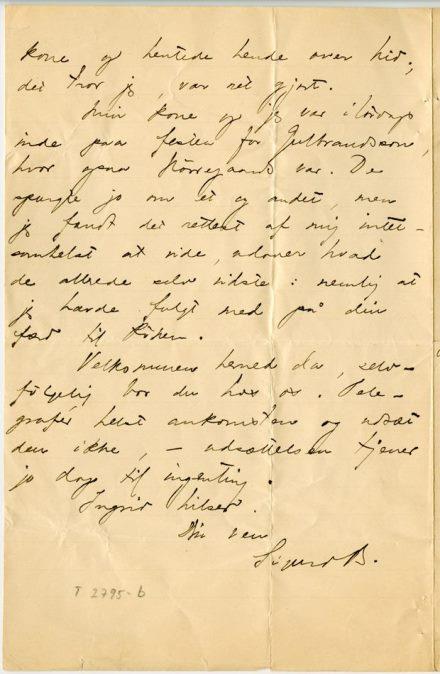 kone og hentede hende over hid;
det tror jeg, var ret gjort.
Min kone og jeg var i lørdags
inde paa festen for Gulbrandson,
hvor ogsaa Nörregaards var. De
spurgte jo om et og andet, men
jeg fandt det rettest af mig intet-
somhelst at vide, udover hvad
de allrede selv vidste: nemlig at
jeg havde fulgt med på din
færd til
Velkommen herned da, selv-
følgelig bor du hos os. Tele-
grafér helst ankomsten og udsæt
den ikke, – udsættelsen tjener
jo dog til ingenting.
Ingrid hilser.
Din ven
Sigurd B.
T 2795-b